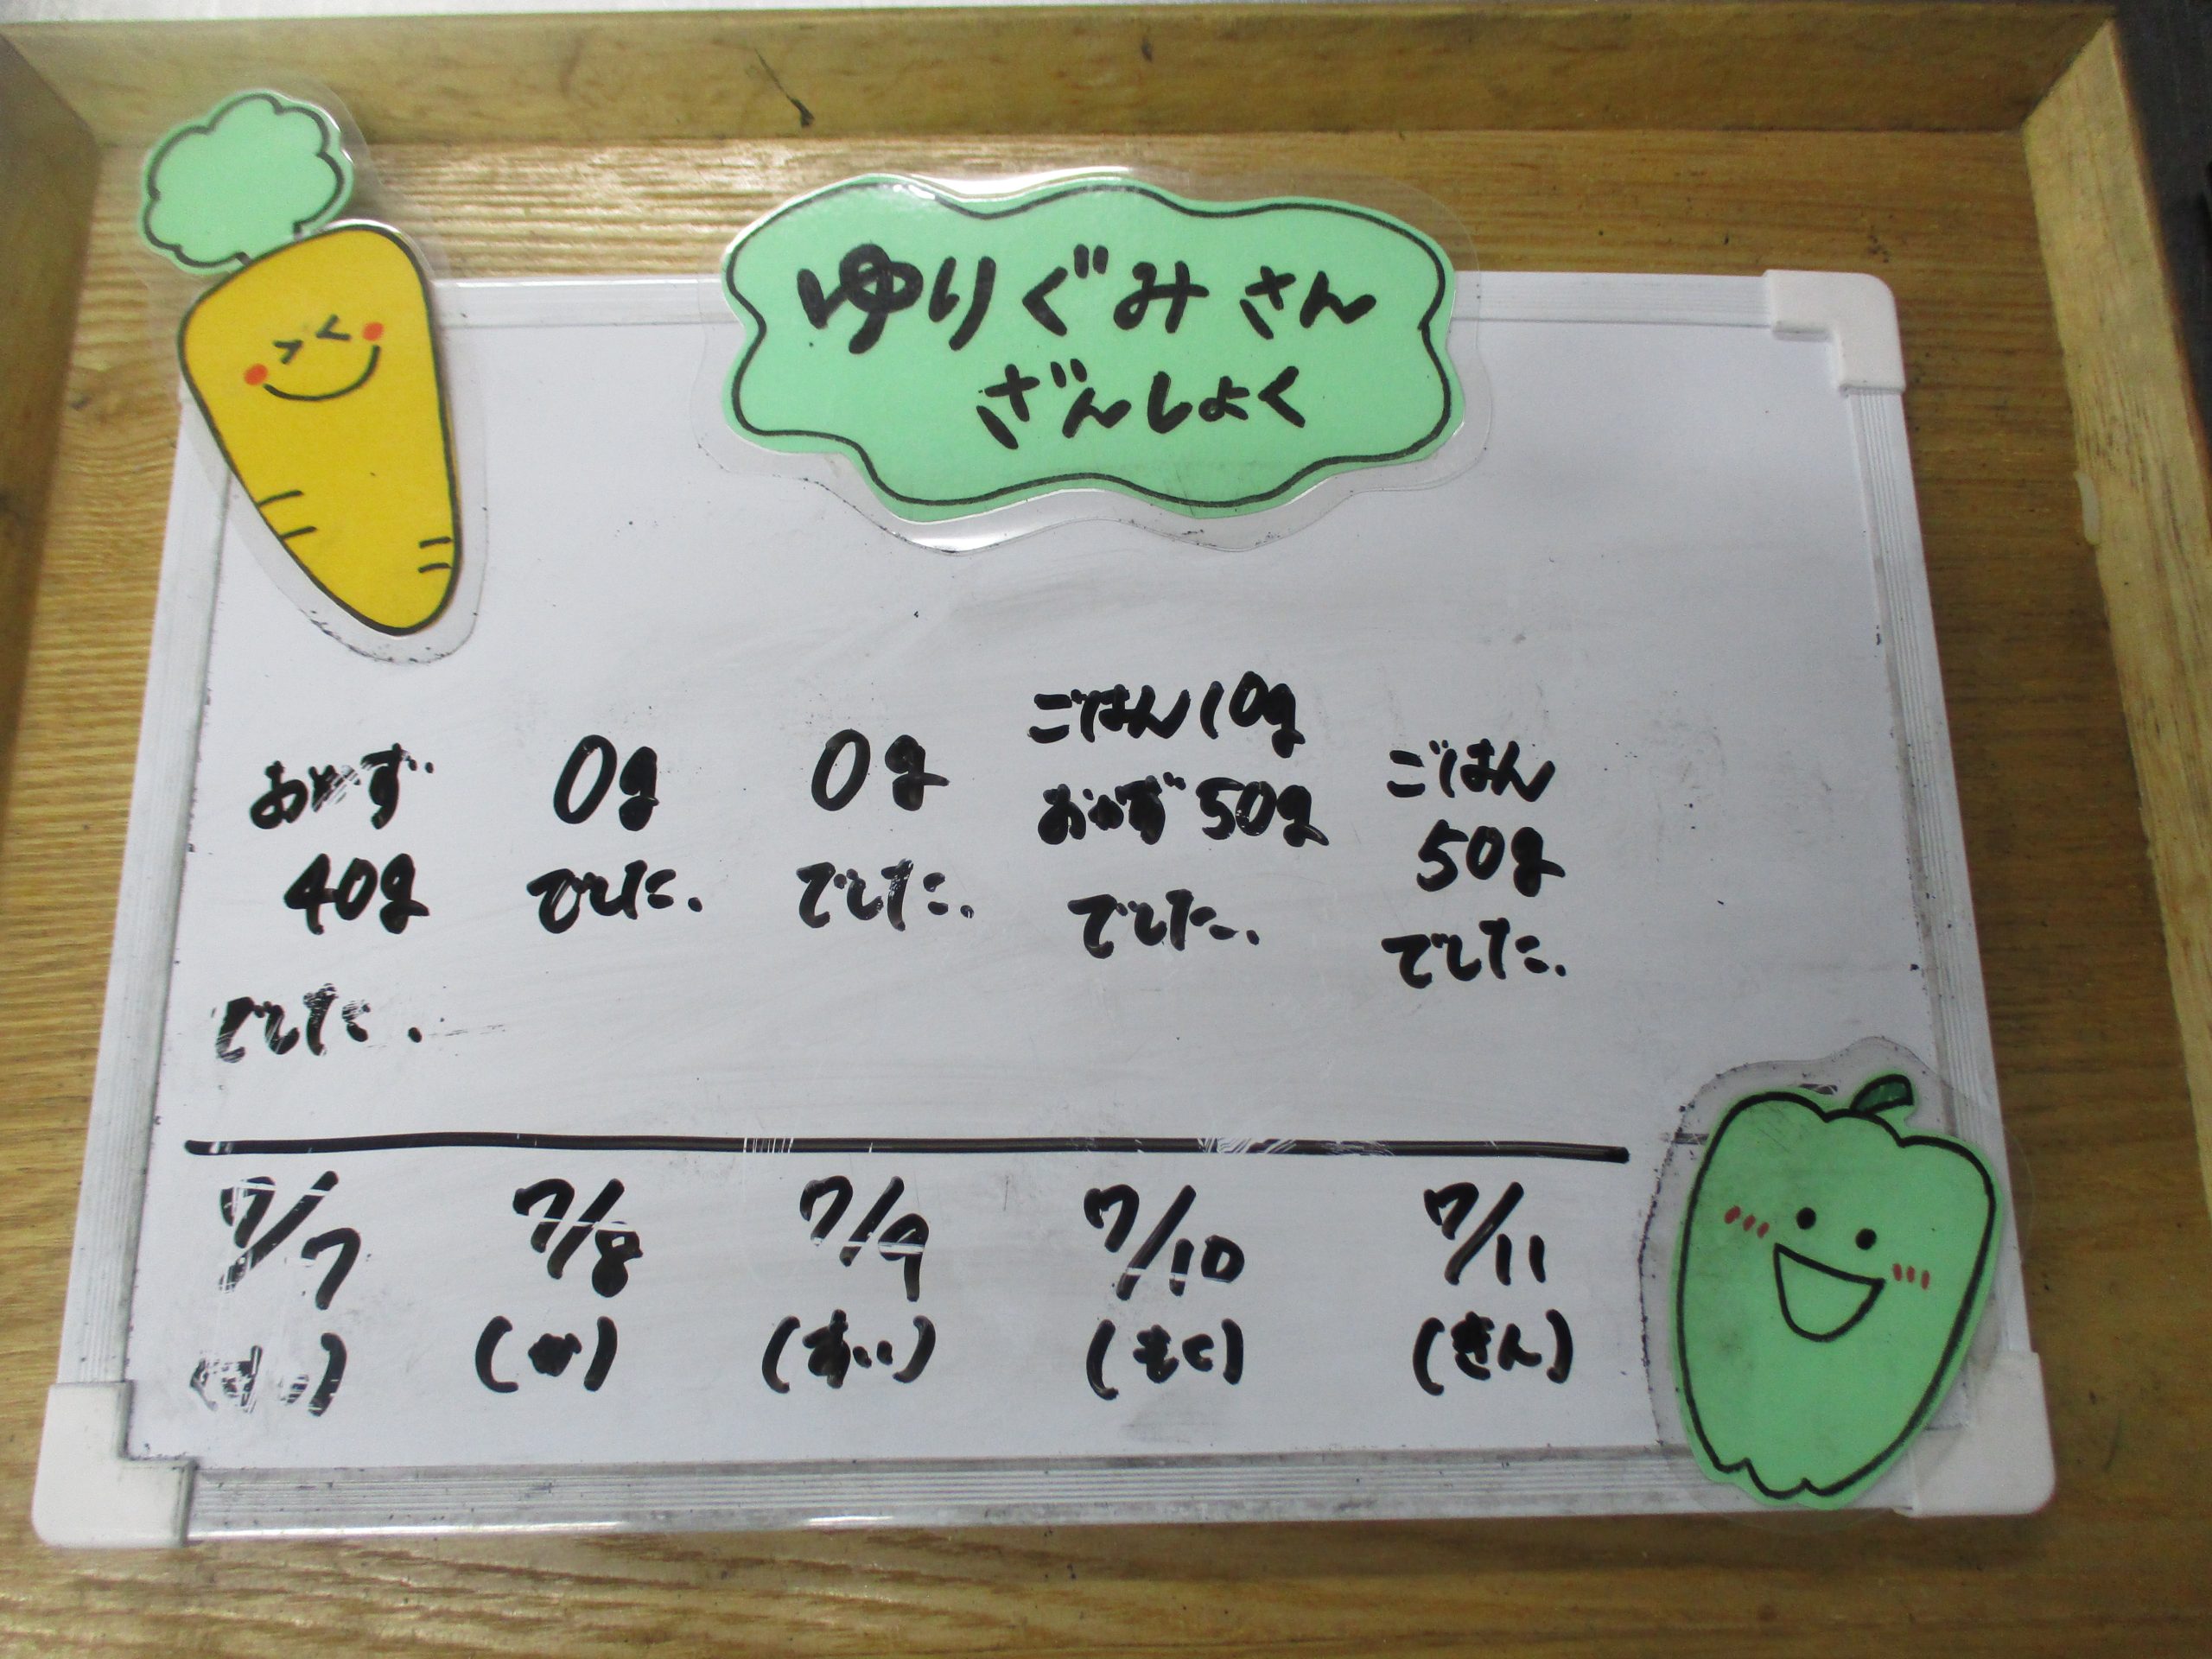 ゆりぐみさん
ざんしょく
おかず
40g
でした.
0g
でした.
0g
でした.
ごはん10g
おかず50g
でした.
ごはん
50g
でした.
7/7
7/8
(か)
7/9
(すい)
7/10
(もく)
7/11
(きん)